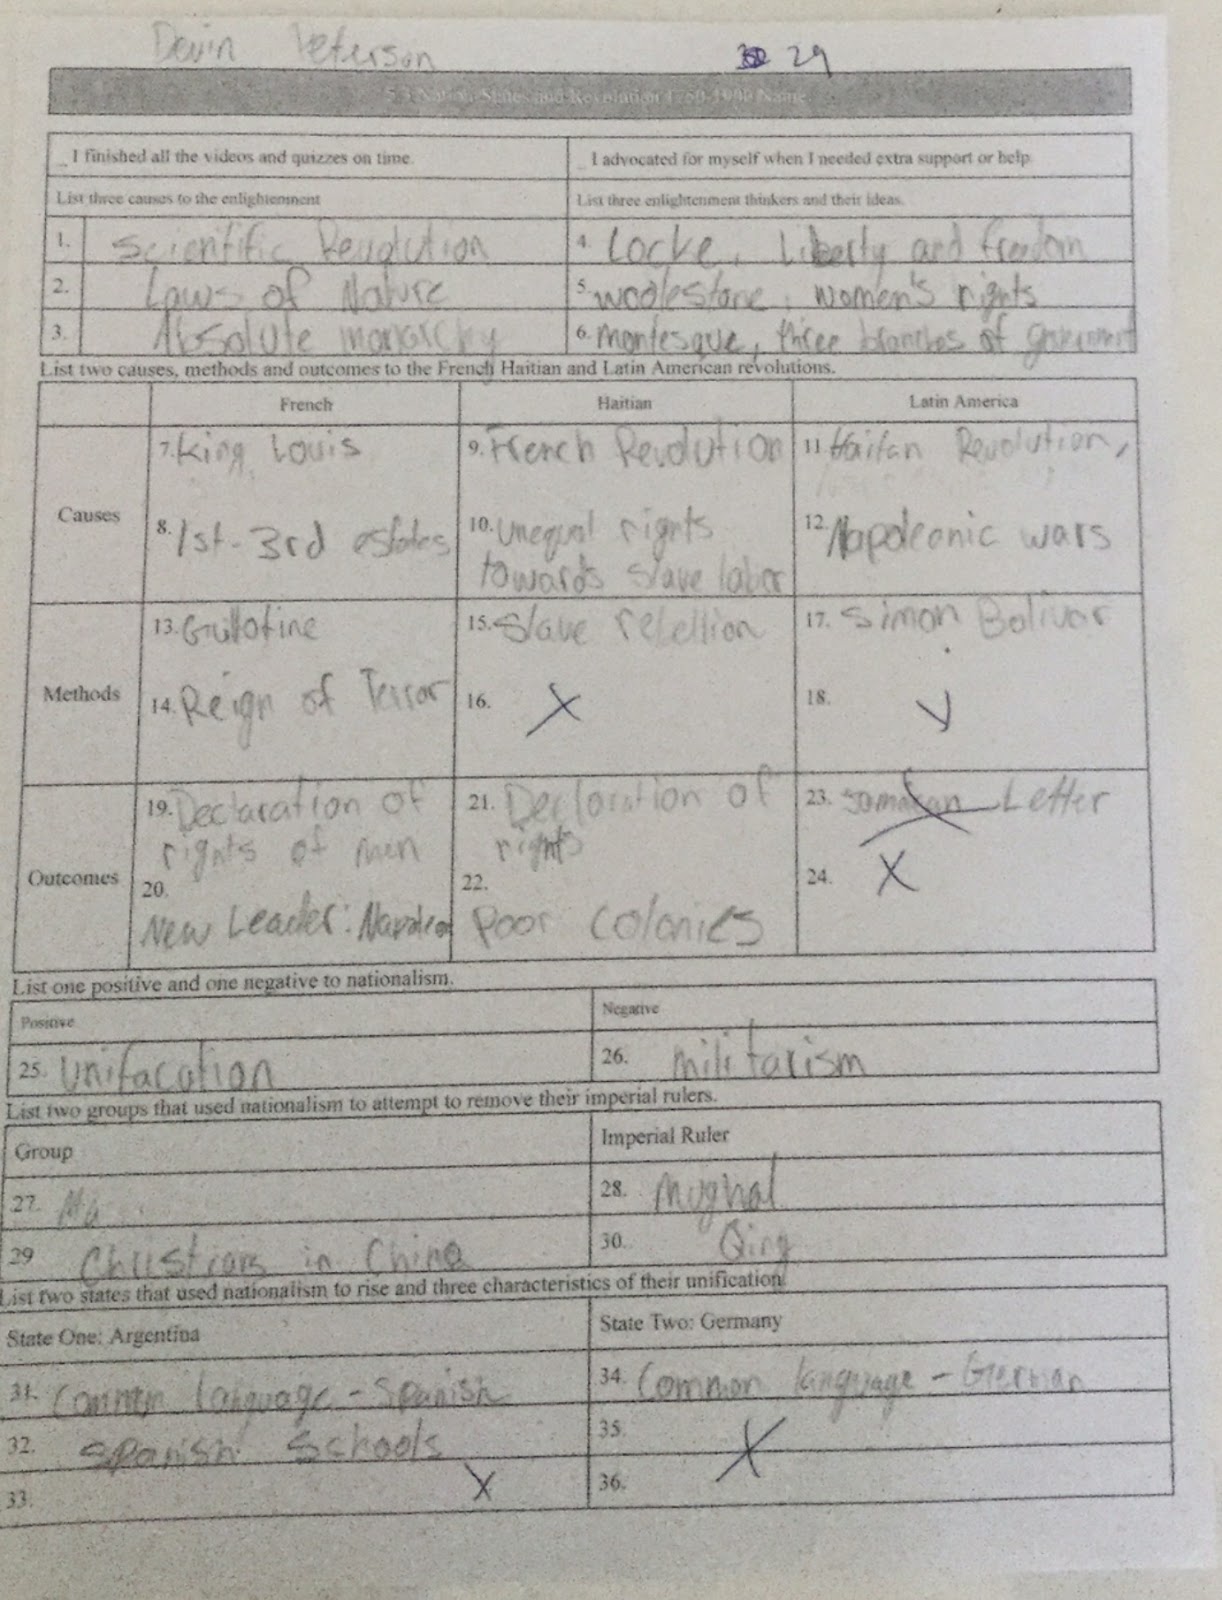 Devin Peterson 29
5.3 Nation-States and Revolution 1750-1900 Name
_ I finished all the videos and quizzes on time. I advocated for myself when I needed extra support or help
List three causes to the enlightenment List three enlightenment thinkers and their ideas.
1. Scientific Revolution 4. Locke, Liberty and freedom
2. Laws of Nature 5. woolestone, women's rights
3. Absolute monarchy 6. Montesque, three branches of government
List two causes, methods and outcomes to the French Haitian and Latin American revolutions.
French Haitian Latin America
Causes
7. King Louis 9. French Revolution 11. Haitan Revolution,
8. 1st-3rd estates 10. Unequal rights 12. Napoleonic wars
towards slave labor
Methods
13. Guilotine 15. Slave rebellion 17. Simon Bolivar
14. Reign of Terror 16. X 18.
Outcomes
19. Declaration of 21. Decloration of 23. Jamaican Letter
rights of men rights
20. 22. 24. X
New Leader: Napoleon Poor Colonies
List one positive and one negative to nationalism.
Positive Negative
25. Unifacation 26. militarism
List two groups that used nationalism to attempt to remove their imperial rulers.
Group Imperial Ruler
27. 28. Mughal
29 Christians in China 30. Qing
List two states that used nationalism to rise and three characteristics of their unification
State One: Argentina State Two: Germany
31. Common language - Spanish 34. Common language - German
32. Spanish Schools 35. X
33. X 36.